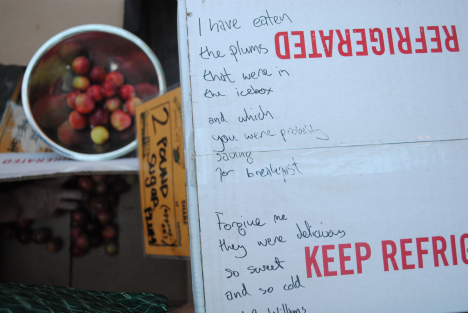 I have eaten
the plums
that were in
the icebox
and which
you were probably
saving
for breakfast
Forgive me
they were delicious
so sweet
and so cold
Williams
REFRIGERATED
KEEP REFRIG
2 POUND
SUGAR PLUM
REFRIGERATED